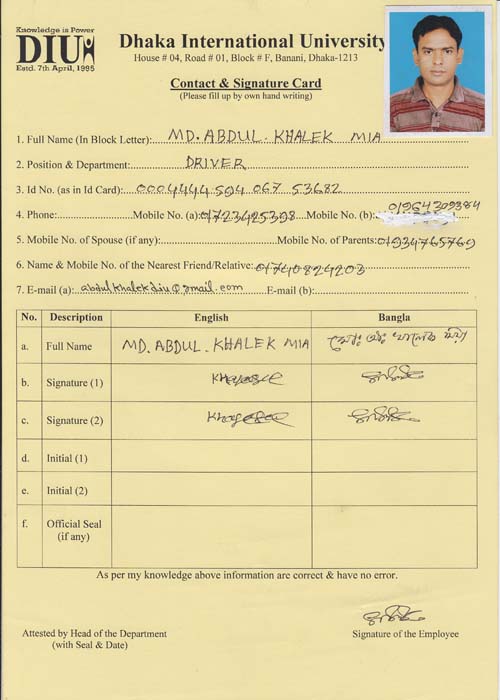 Knowledge is Power
DIU
Estd. 7th April, 1995
Dhaka International University
House # 04, Road # 01, Block # F, Banani, Dhaka-1213
Contact & Signature Card
(Please fill up by own hand writing)
1. Full Name (In Block Letter): MD. ABDUL. KHALEK MIA
2. Position & Department: DRIVER
3. Id No. (as in Id Card): 0004444504 067 53682
4. Phone: Mobile No. (a): 01723425398 Mobile No. (b): 01964309384
5. Mobile No. of Spouse (if any): Mobile No. of Parents: 01934765769
6. Name & Mobile No. of the Nearest Friend/Relative: 01740824203
7. E-mail (a): abdulkhalekdiu@gmail.com E-mail (b):
No. Description English Bangla
a. Full Name MD. ABDUL. KHALEK MIA মোঃ আঃ খালেক মিয়া
b. Signature (1)
c. Signature (2)
d. Initial (1)
e. Initial (2)
f. Official Seal
(if any)
As per my knowledge above information are correct & have no error.
Attested by Head of the Department
(with Seal & Date)
Signature of the Employee